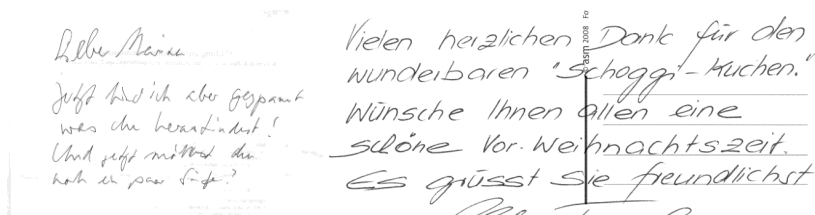 Liebe Marina
Jetzt bin ich aber gespannt
was du herausfindest!
Und jetzt möchtest du
noch ein paar Sätze?
Vielen herzlichen Dank für den
wunderbaren "Schoggi-Kuchen."
Wünsche Ihnen allen eine
schöne Vor-Weihnachtszeit.
Es grüsst Sie freundlichst
asm 2008 Fo